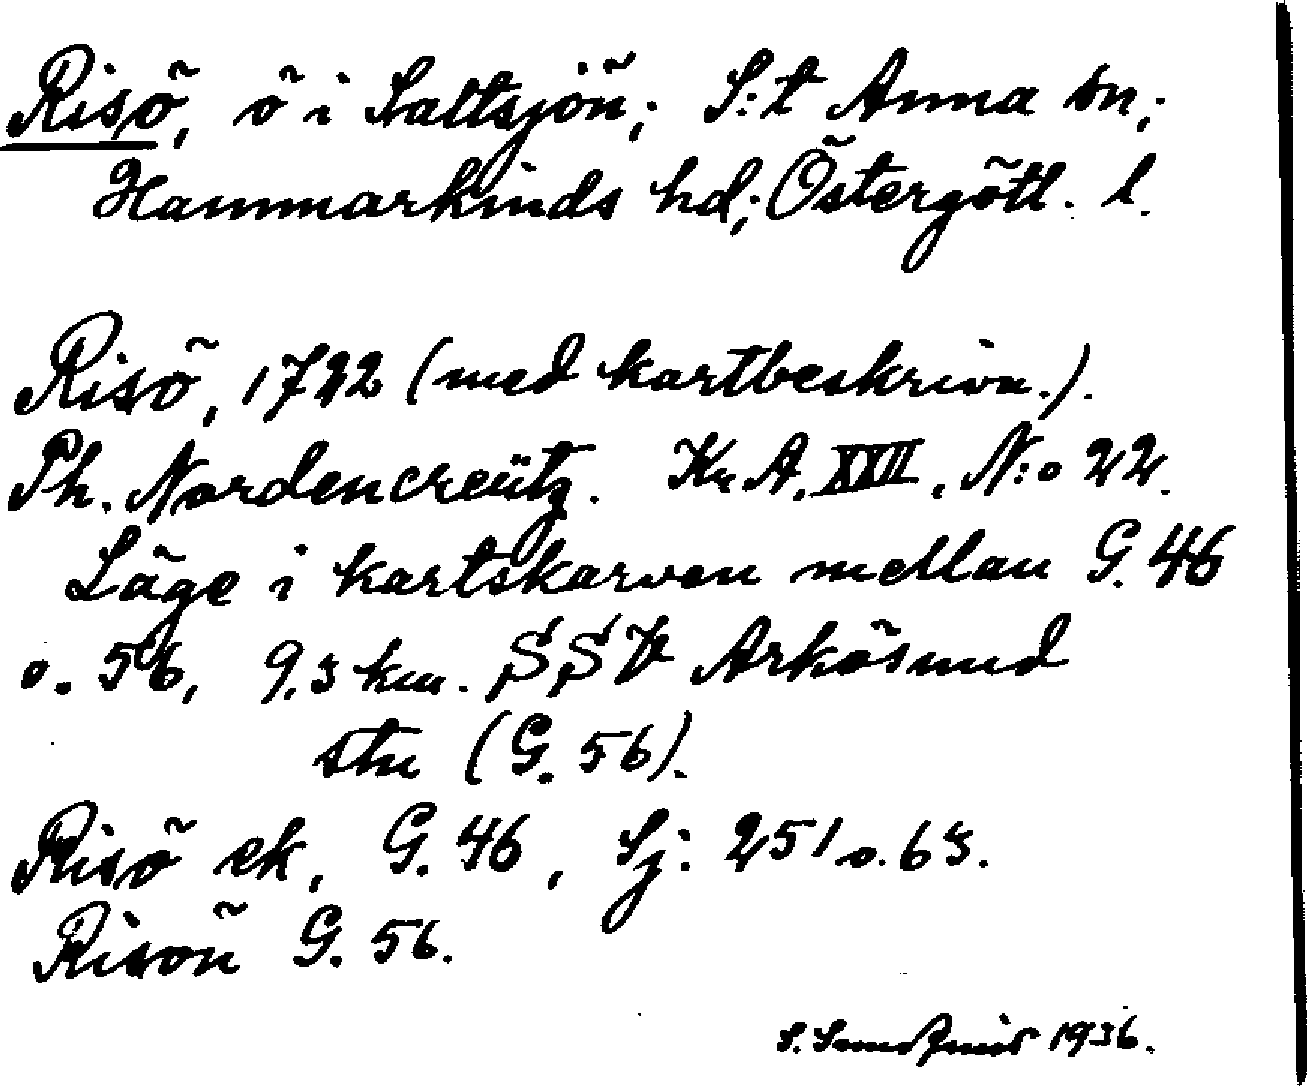 Risö, ö i Saltsjön; S:t Anna sn;
Hammarkinds hd; Östergötl. l.
Risö, 1722 (med kartbeskrivn.).
Ph. Nordencreütz. Kr. A. XXII, N:o 22.
Läge i kartskarven mellan G. 46
o. 56, 9,3 km. SSV Arkösund
stn (G. 56).
Risö ek, G. 46, Sj: 251 o. 63.
Risön G. 56.
S. 1936.